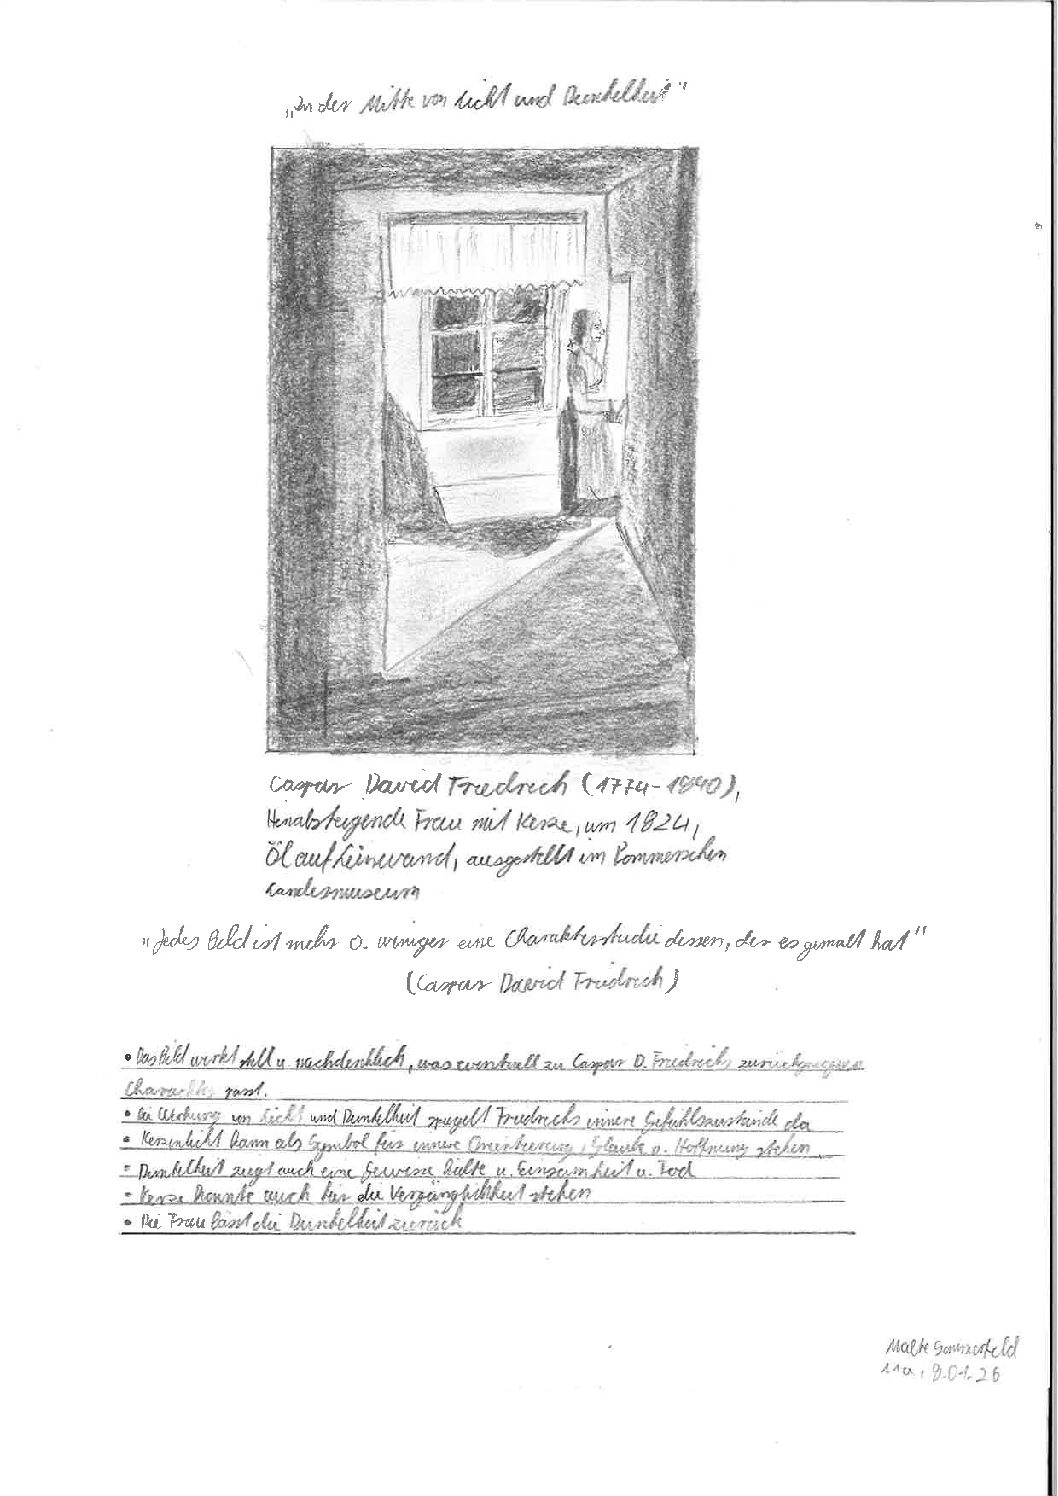 „In der Mitte von Licht und Dunkelheit"
Caspar David Friedrich (1774-1840),
Hinabsteigende Frau mit Kerze, um 1824,
Öl auf Leinwand, ausgestellt im Pommerschen
Landesmuseum
"Jedes Bild ist mehr o. weniger eine Charakterstudie dessen, der es gemalt hat"
(Caspar David Friedrich)
• Das Bild wirkt still u. nachdenklich, was eventuell zu Caspar D. Friedrichs
Charakter passt.
• Die Wirkung von Licht und Dunkelheit spiegelt Friedrichs innere Gefühlszustände da
• Kerzenlicht kann als Symbol für innere Orientierung, Glaube o. Hoffnung stehen
- Dunkelheit zeigt auch eine gewisse Kälte u. Einsamkeit u. Tod
- Kerze könnte auch für die Vergänglichkeit stehen
• Die Frau lässt die Dunkelheit zurück
Malte Sommerfeld
11a, 9.01.26